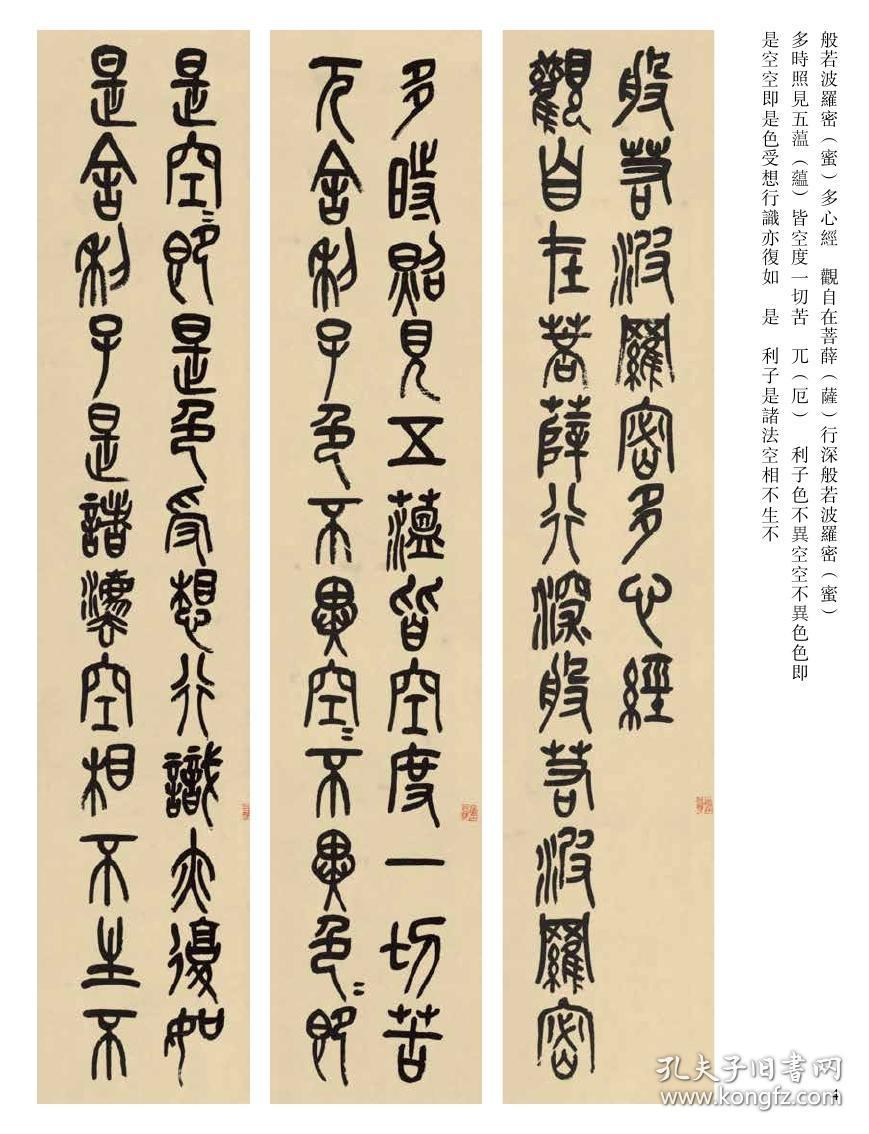 般若波羅密（蜜）多心經　觀自在菩薛（薩）行深般若波羅密（蜜）
多時照見五薀（蘊）皆空度一切苦　兀（厄）　利子色不異空空不異色色即
是空空即是色受想行識亦復如　是　利子是諸法空相不生不
般若波羅密多心經
觀自在菩薛行深般若波羅密
多時照見五薀皆空度一切苦
兀舍利子色不異空〻不異色〻即
是空〻即是色受想行識亦復如
是舍利子是諸灋空相不生不
孔夫子旧书网
www.kongfz.com
4